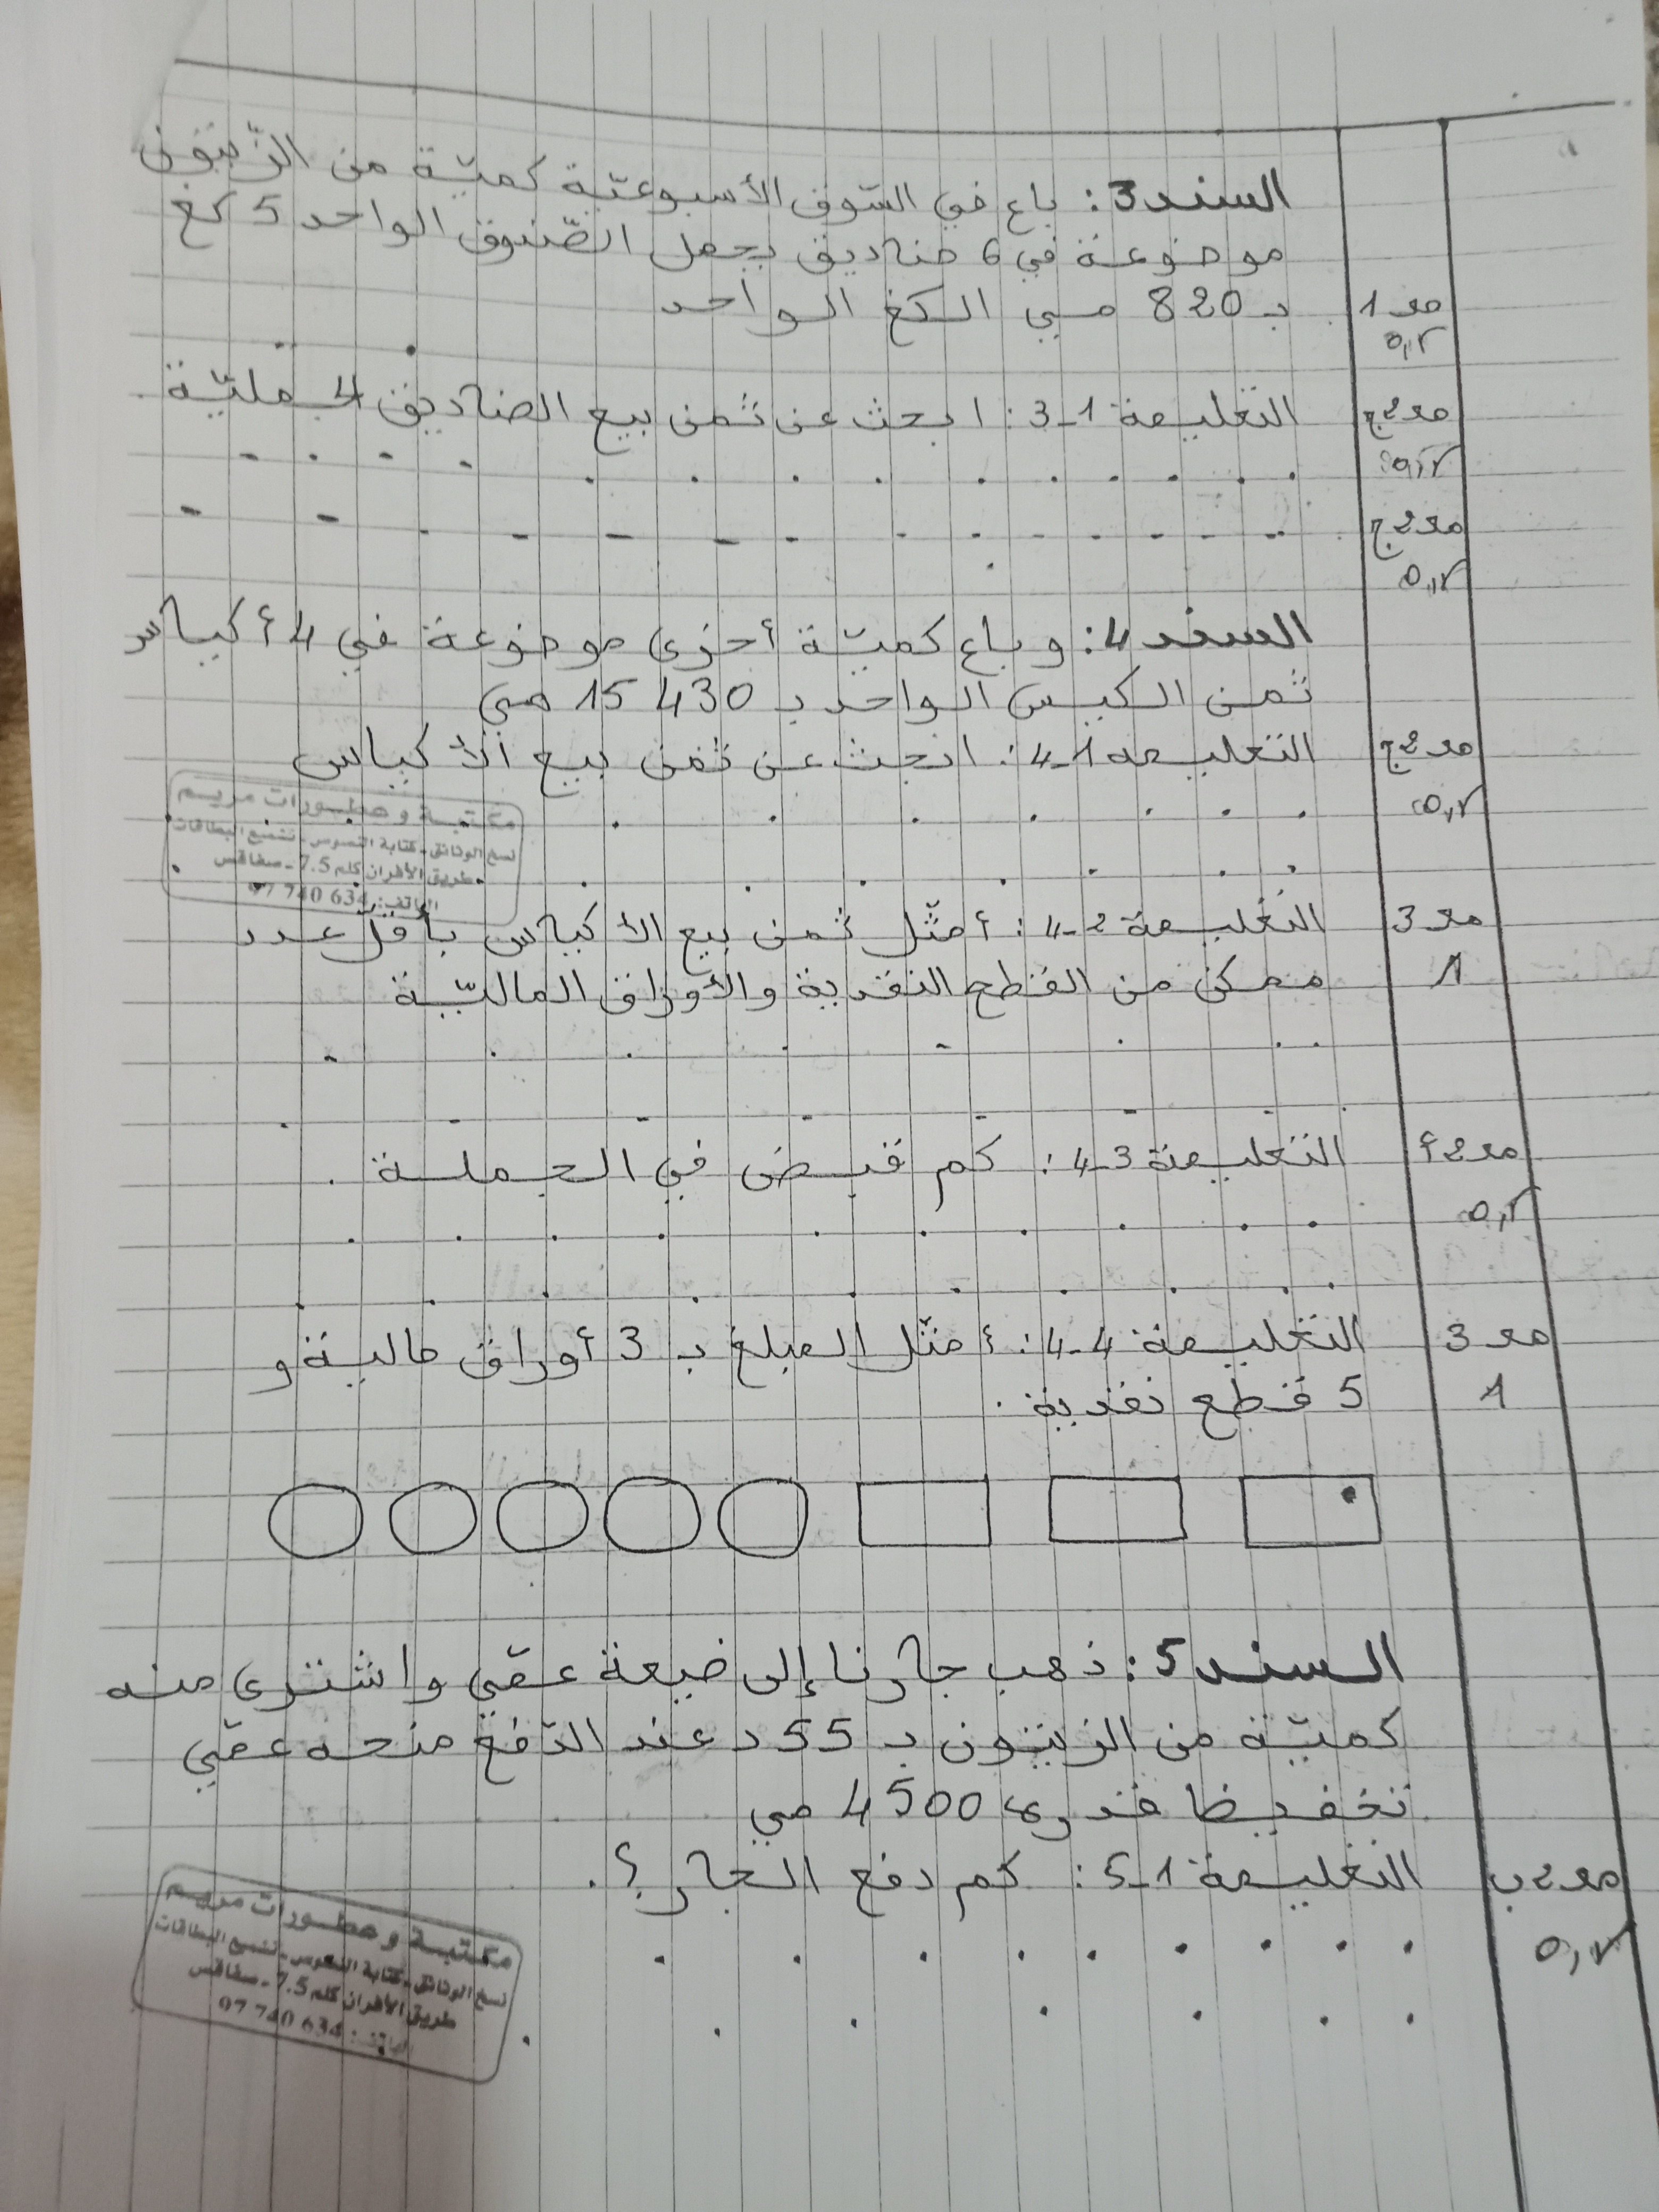 السند 3: باع في السّوق الأسبوعيّة كميّة من الزّيتون
موضوعة في 6 صناديق يحمل الصّندوق الواحد 5 كغ
بـ 820 مي الكغ الواحد
مع 1
0,5
التعليمة 1-3: ابحث عن ثمن بيع الصناديق الجمليّة
مع2ج
0,5
مع2ج
0,5
السند 4: وباع كميّة أخرى موضوعة في 4 أكياس
ثمن الكيس الواحد بـ 15 430 مي
التعليمة 1-4: ابحث عن ثمن بيع الأكياس
مع2ج
0,5
مكتبة و مطبورات مريم
نسخ الوثائق - كتابة النصوص - تشميع البطاقات
طريق الأفران كلم 7.5 - صفاقس
الهاتف: 97 740 634
التعليمة 2-4: أمثّل ثمن بيع الأكياس بأقلّ عدد
ممكن من القطع النقدية والأوراق الماليّة
مع 3
1
التعليمة 3-4: كم قبض في الجملة.
مع2أ
0,5
التعليمة 4-4: أمثّل المبلغ بـ 3 أوراق مالية و
5 قطع نقدية.
مع 3
1
السند 5: ذهب جارنا إلى ضيعة عمّي واشترى منه
كميّة من الزيتون بـ 55 د عند الدّفع منحه عمّي
تخفيضا قدره 4500 مي
التعليمة 1-5: كم دفع الجار؟.
مع2ب
0,5
مكتبة و مطبورات مريم
نسخ الوثائق - كتابة النصوص - تشميع البطاقات
طريق الأفران كلم 7.5 - صفاقس
الهاتف: 97 740 634